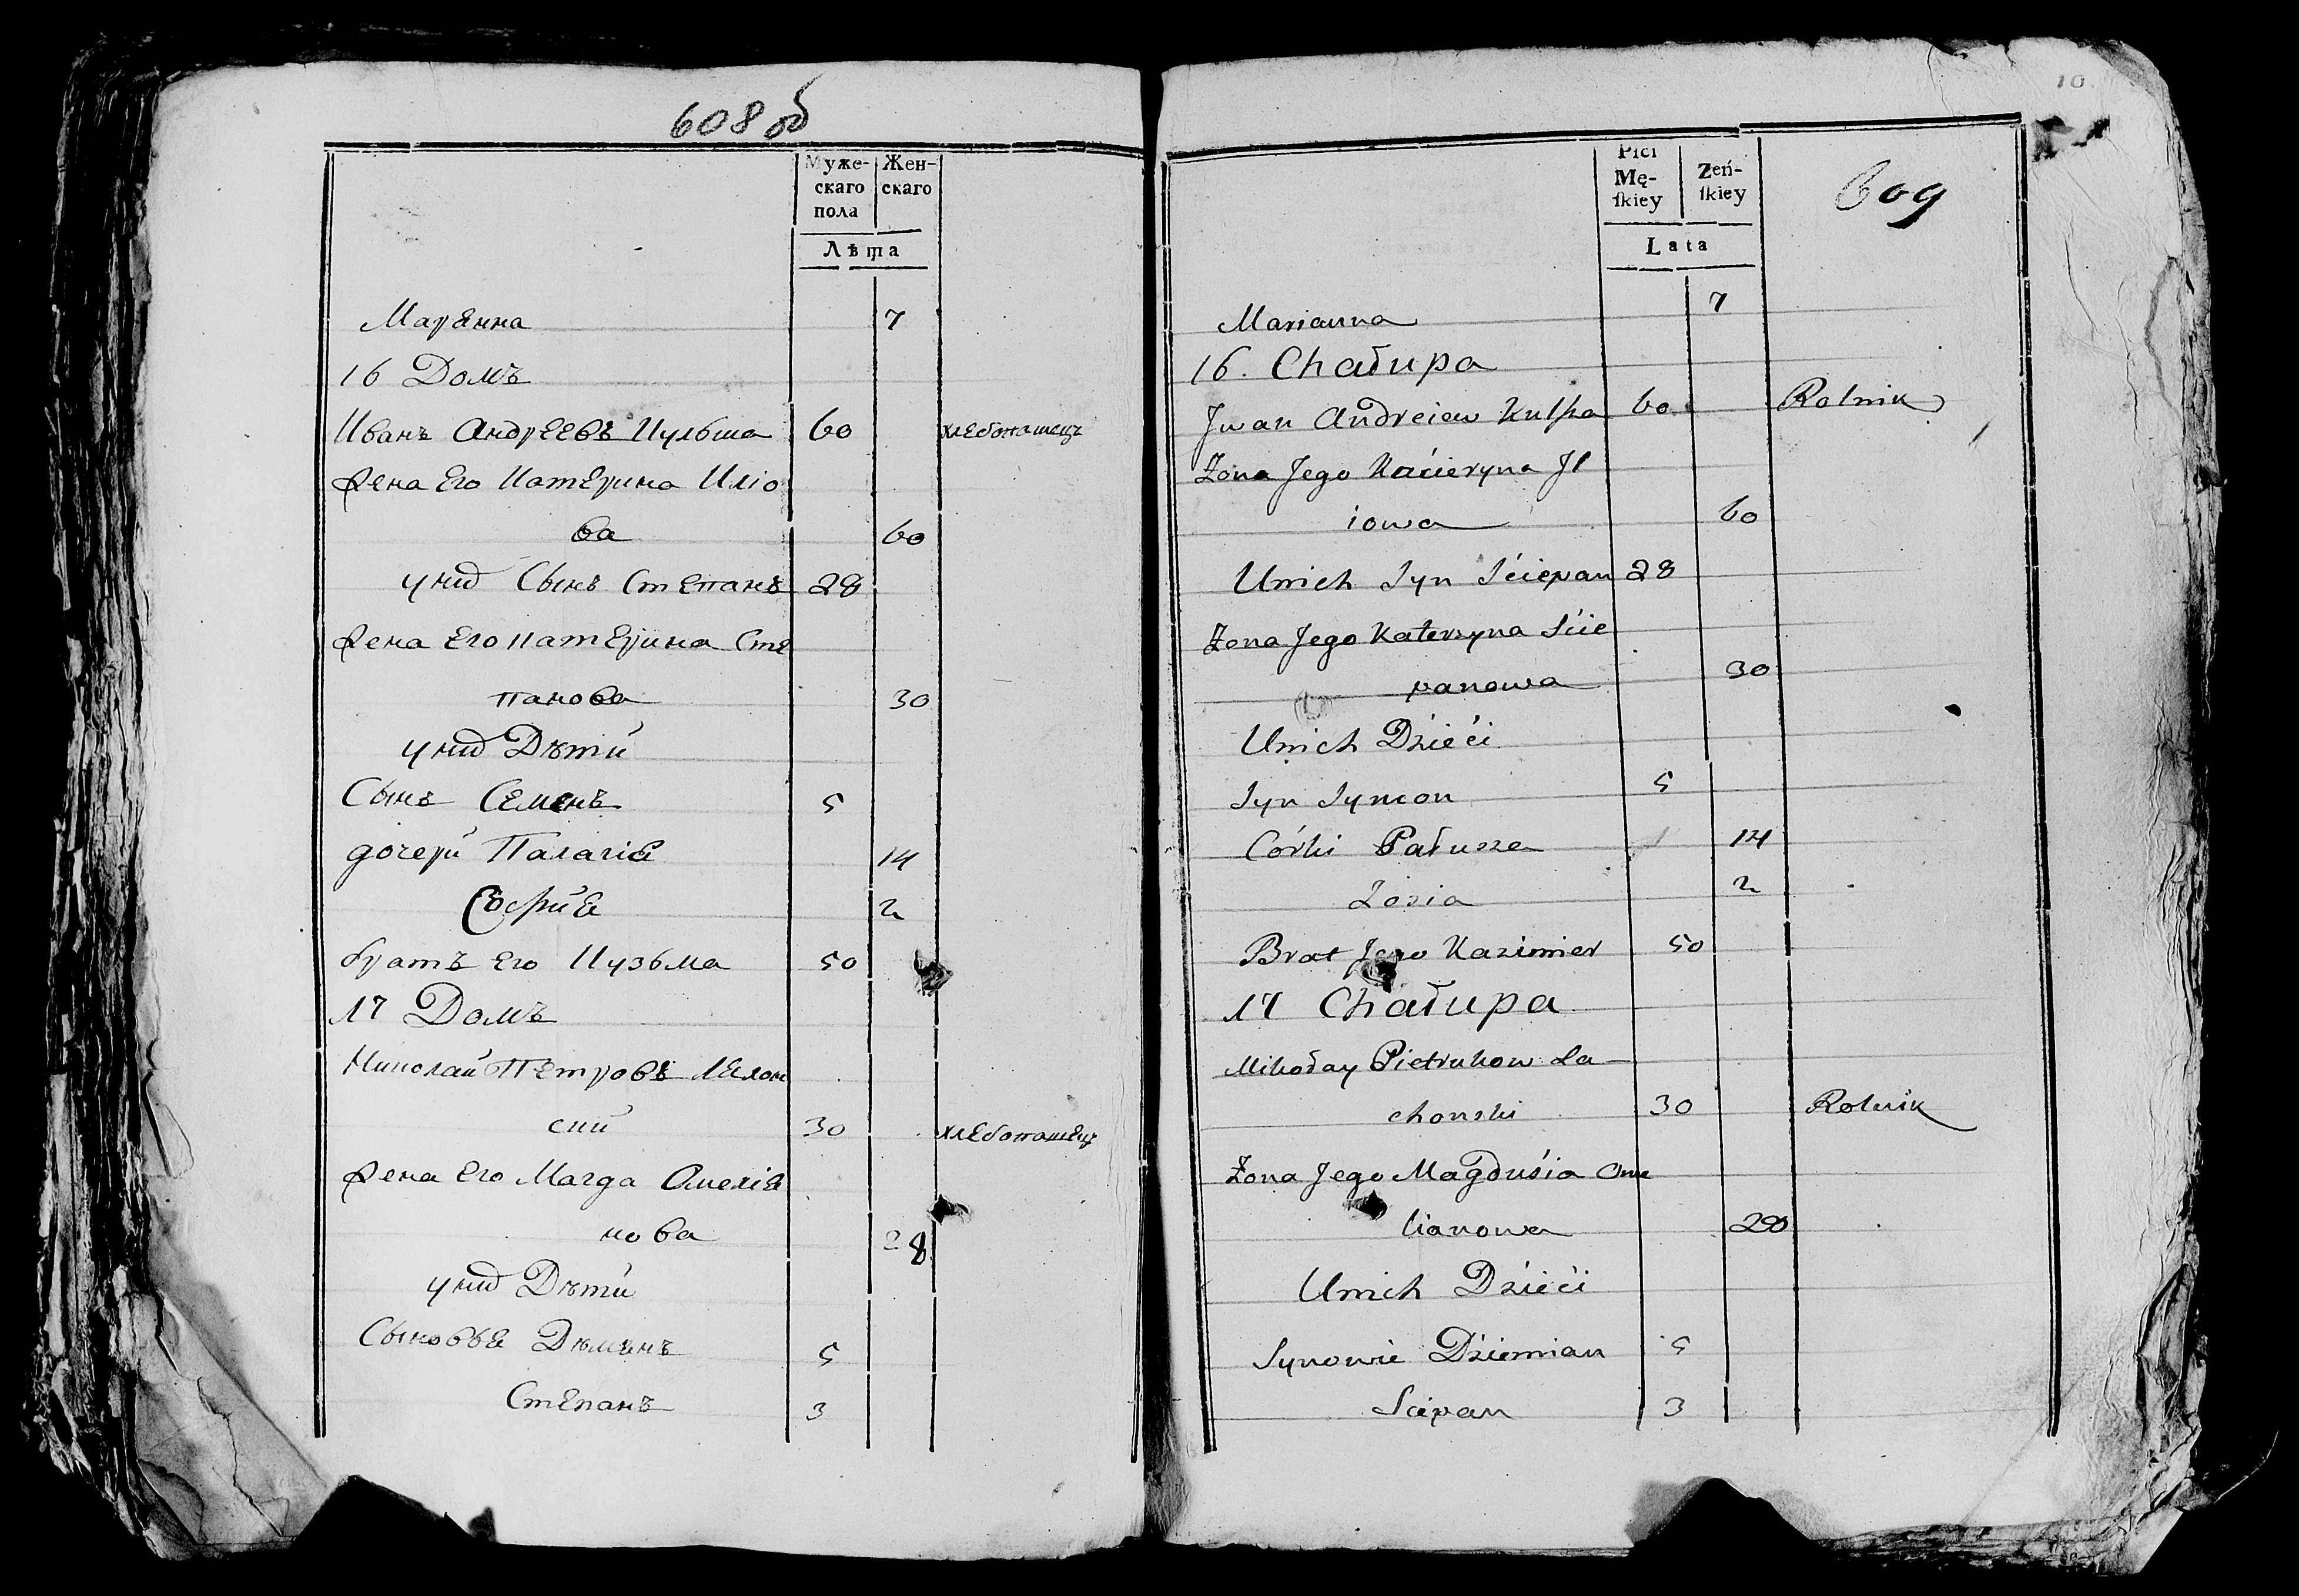 608 об
Муже- Жен-
скаго скаго
пола
Лѣта
Марѣнна 7
16 Домъ
Иванъ Андреевъ Кульша 60 хлебопашецъ
Жена Его Катерина Иліо
ва 60
уних Сынъ Степанъ 28
Жена Его Катерина Сте
панова 30
уних Дѣти
Сынъ Семенъ 5
дочери Палагія 14
Софиія 2
братъ Его Кузьма 50
17 Домъ
Николай Петровъ
ский 30 хлебопашец
Жена Его Магда Омелія
нова 28
уних Дѣти
Сыновья Дѣмянъ 5
Степанъ 3
10
Płci
Mę- Zeń-
ſkiey ſkiey
609
Lata
Marianna 7
16. Chałupa
Jwan Andreiew 60 Rolnik
Żona Jego Kacieryna Jl
iowa 60
Unich Syn Sciepan 28
Żona Jego Katerzyna Scie
panowa 30
Unich Dzieći
Syn Symon 5
Córki Pałusza 14
Zosia 2
Brat Jego Kazimier 50
17 Chałupa
Mikołay Pietrukow La-
chonski 30 Rolnik
Żona Jego Magdusia Ome
lianowa 28
Unich Dzieći
Synowie Dziemian 5
Scepan 3